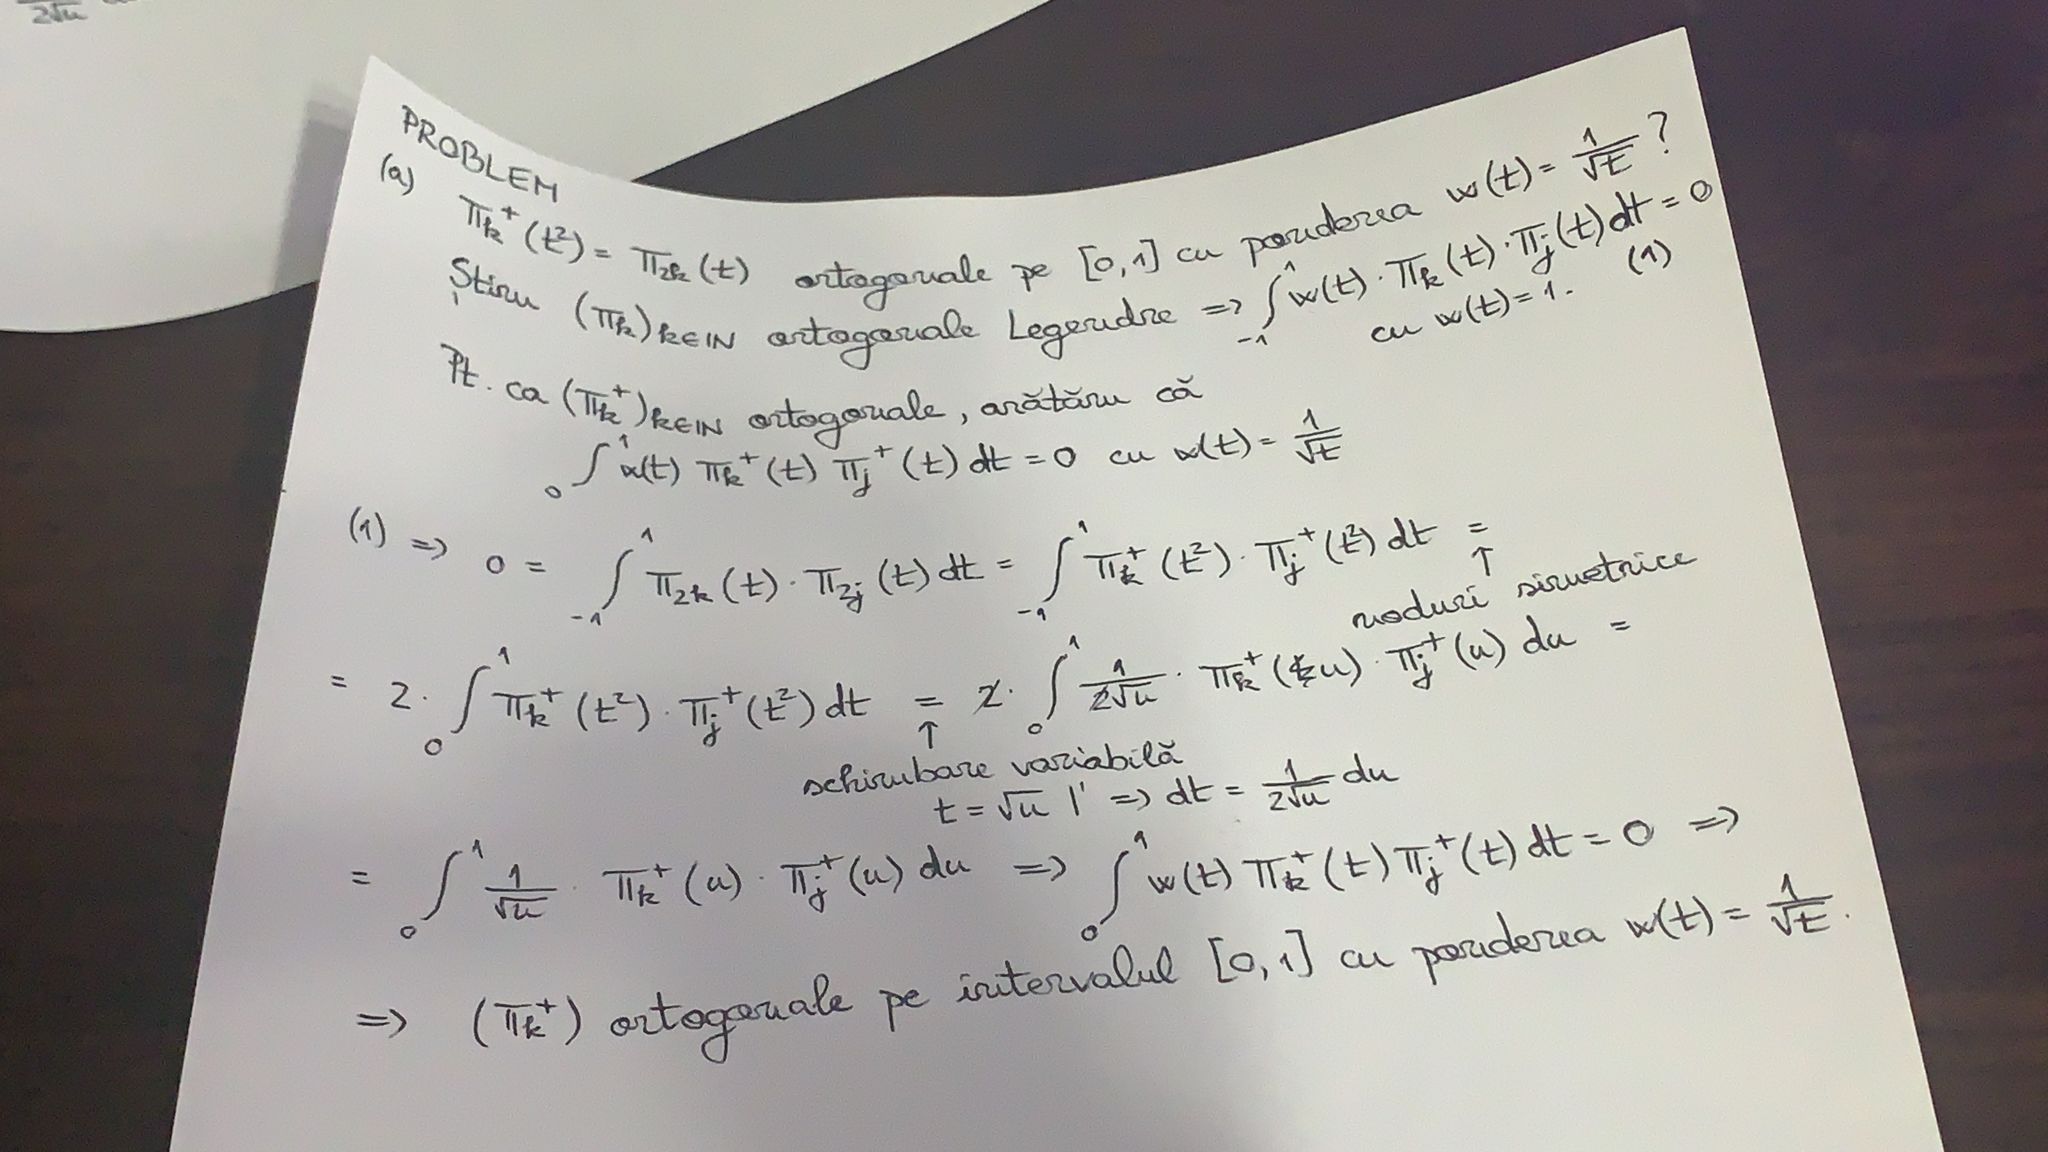 2√u
PROBLEM
(a) π_k^+(t²) = π_2k(t) ortogonale pe [0,1] cu ponderea w(t) = 1/√t ?
Știm (π_k)_k∈IN ortogonale Legendre => ∫_{-1}^{1} w(t)·π_k(t)·π_j(t)dt = 0
cu w(t) = 1. (1)
Pt. ca (π_k^+)_k∈IN ortogonale, arătăm că
∫_0^1 w(t) π_k^+(t) π_j^+(t) dt = 0 cu w(t) = 1/√t
(1) => 0 = ∫_{-1}^{1} π_2k(t)·π_2j(t) dt = ∫_{-1}^{1} π_k^+(t²)·π_j^+(t²) dt =
↑
noduri simetrice
= 2·∫_0^1 π_k^+(t²)·π_j^+(t²) dt = 2·∫_0^1 1/(2√u)·π_k^+(u)·π_j^+(u) du =
↑
schimbare variabilă
t = √u |' => dt = 1/(2√u) du
= ∫_0^1 1/√u · π_k^+(u)·π_j^+(u) du => ∫_0^1 w(t) π_k^+(t) π_j^+(t) dt = 0 =>
=> (π_k^+) ortogonale pe intervalul [0,1] cu ponderea w(t) = 1/√t.